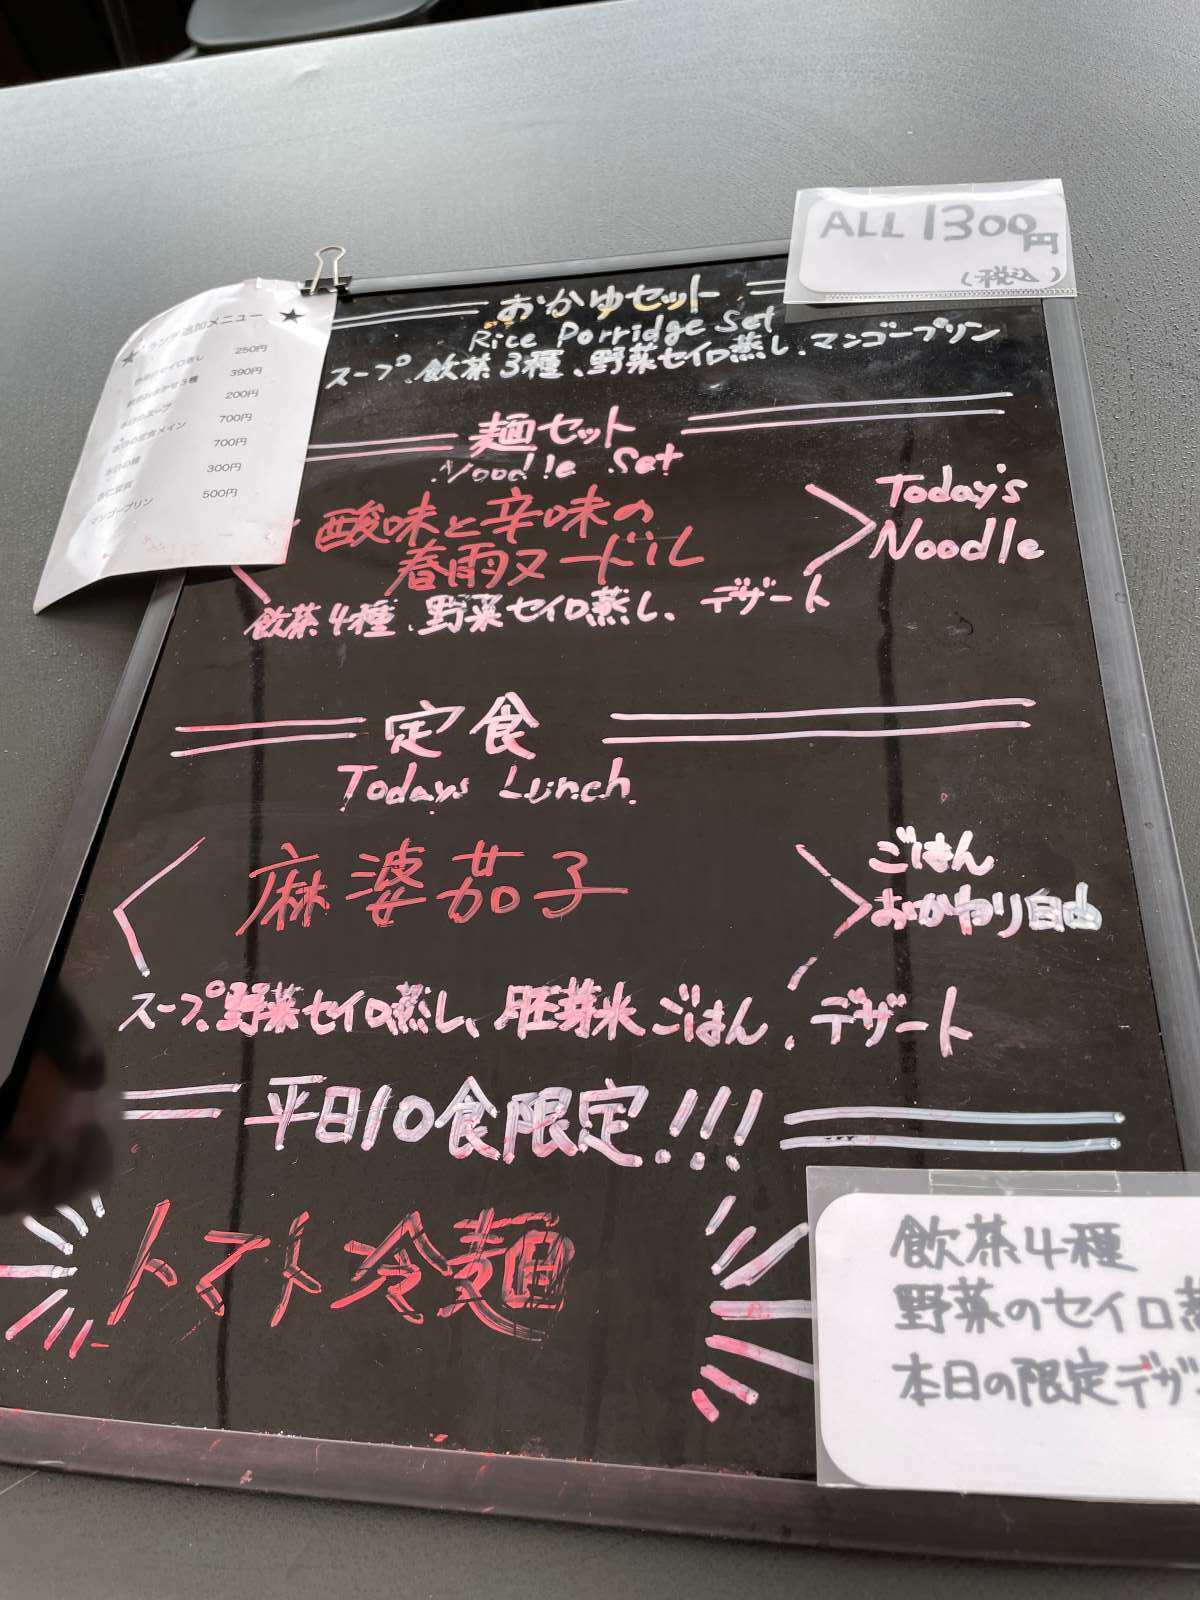 ALL 1300円
(税込)
おかゆセット
Rice Porridge Set
スープ、飲茶3種、野菜セイロ蒸し、マンゴープリン
ランチ追加メニュー
野菜セイロ蒸し 250円
390円
本日のスープ 200円
本日の定食メイン 700円
本日の麺 700円
杏仁豆腐 300円
マンゴープリン 500円
麺セット
Noodle Set
酸味と辛味の
春雨ヌードル
Today's
Noodle
飲茶4種、野菜セイロ蒸し、デザート
定食
Todays Lunch
麻婆茄子
ごはん
おかわり自由
スープ、野菜セイロ蒸し、胚芽米ごはん、デザート
平日10食限定!!!
トマト冷麺
飲茶4種
野菜のセイロ蒸
本日の限定デザ